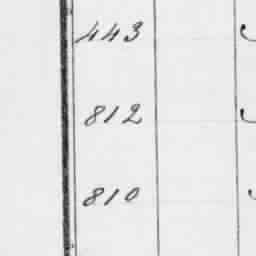 443
812
810